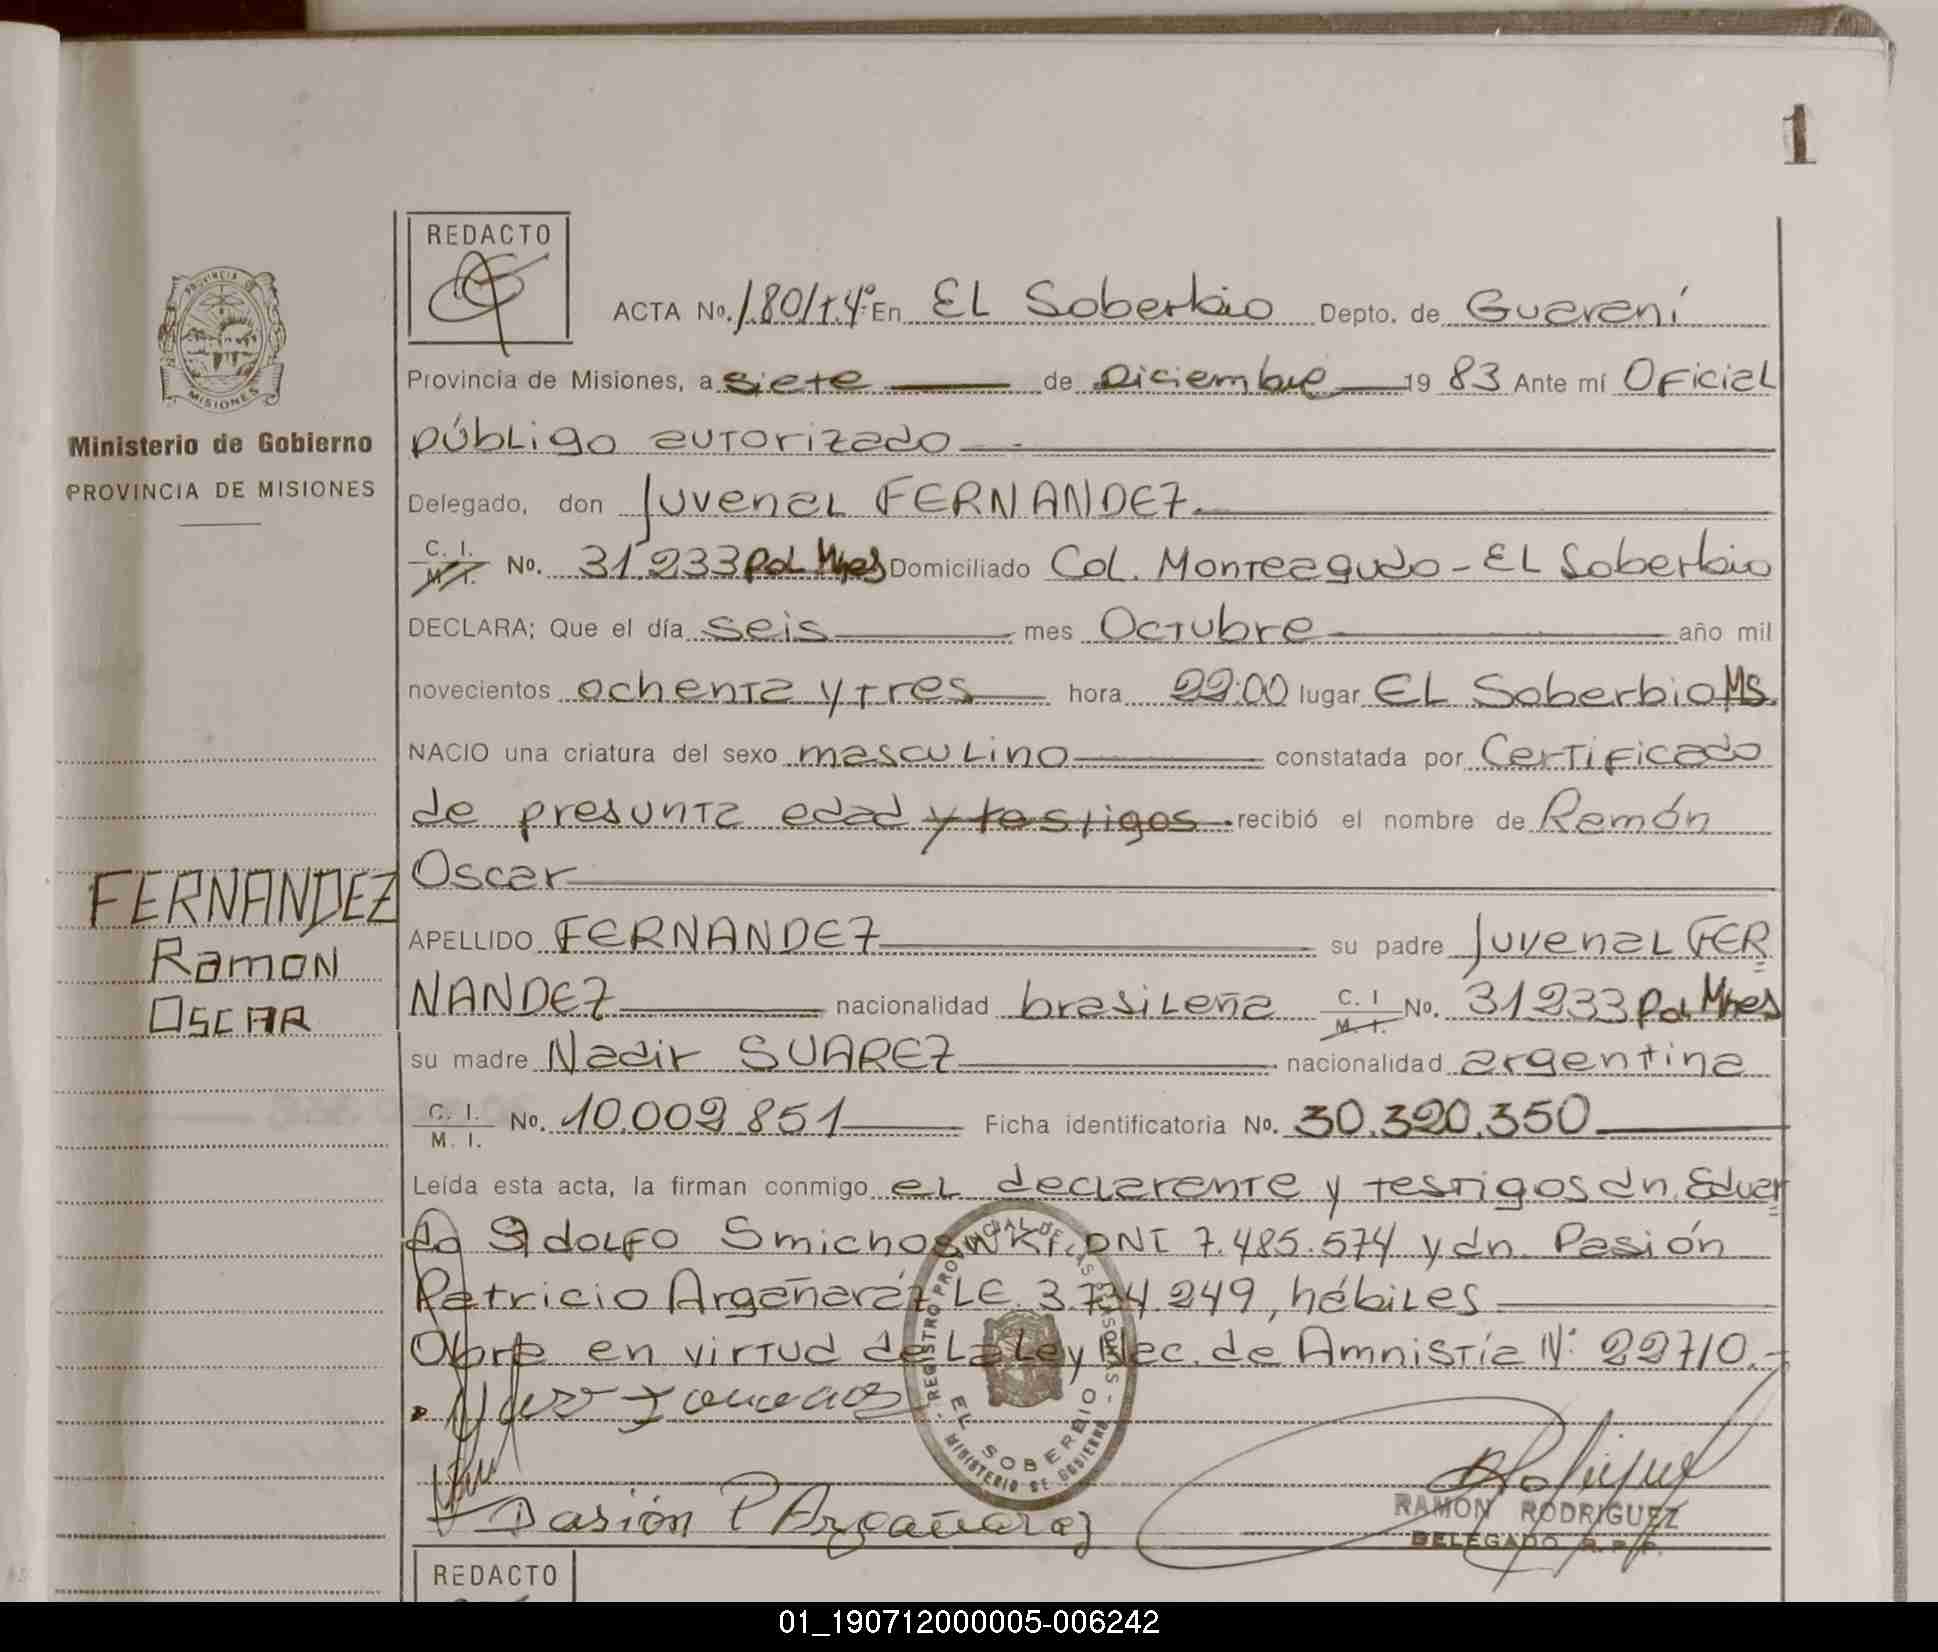 1
REDACTO
ACTA No. 180/T.4º En EL Soberbio Depto. de Guaraní
Provincia de Misiones, a siete de Diciembre 19 83 Ante mí Oficial
públigo autorizado
Delegado, don Juvenal FERNANDEZ
C. I. M. I. No. 31.233 Pol Mnes Domiciliado Col. Monteagudo - EL Soberbio
DECLARA; Que el día seis mes Octubre año mil
novecientos ochenta y tres hora 22:00 lugar EL Soberbio Ms.
NACIO una criatura del sexo masculino constatada por Certificado
de presunta edad y testigos recibió el nombre de Ramón
Oscar
APELLIDO FERNANDEZ su padre Juvenal FER
NANDEZ nacionalidad brasileña C. I M. I. No. 31233 Pol Mnes
su madre Nadir SUAREZ nacionalidad argentina
C. I. M. I. No. 10.009.851 Ficha identificatoria No. 30.320.350
Leída esta acta, la firman conmigo eL declarante y testigos dn. Eduar
do Adolfo Smichoswki DNI 7.485.574 y dn. Pasión
Patricio Argañaráz LE. 3.734.249, hábiles
Obra en virtud de La Ley Nac. de Amnistía Nº 22710.-
Pasión P Argañaraz
RAMON RODRIGUEZ
DELEGADO R. P. P.
REGISTRO PROVINCIAL DE LAS PERSONAS
EL SOBERBIO
MINISTERIO DE GOBIERNO
REDACTO
PROVINCIA DE
MISIONES
Ministerio de Gobierno
PROVINCIA DE MISIONES
FERNANDEZ
Ramon
Oscar
01_190712000005-006242